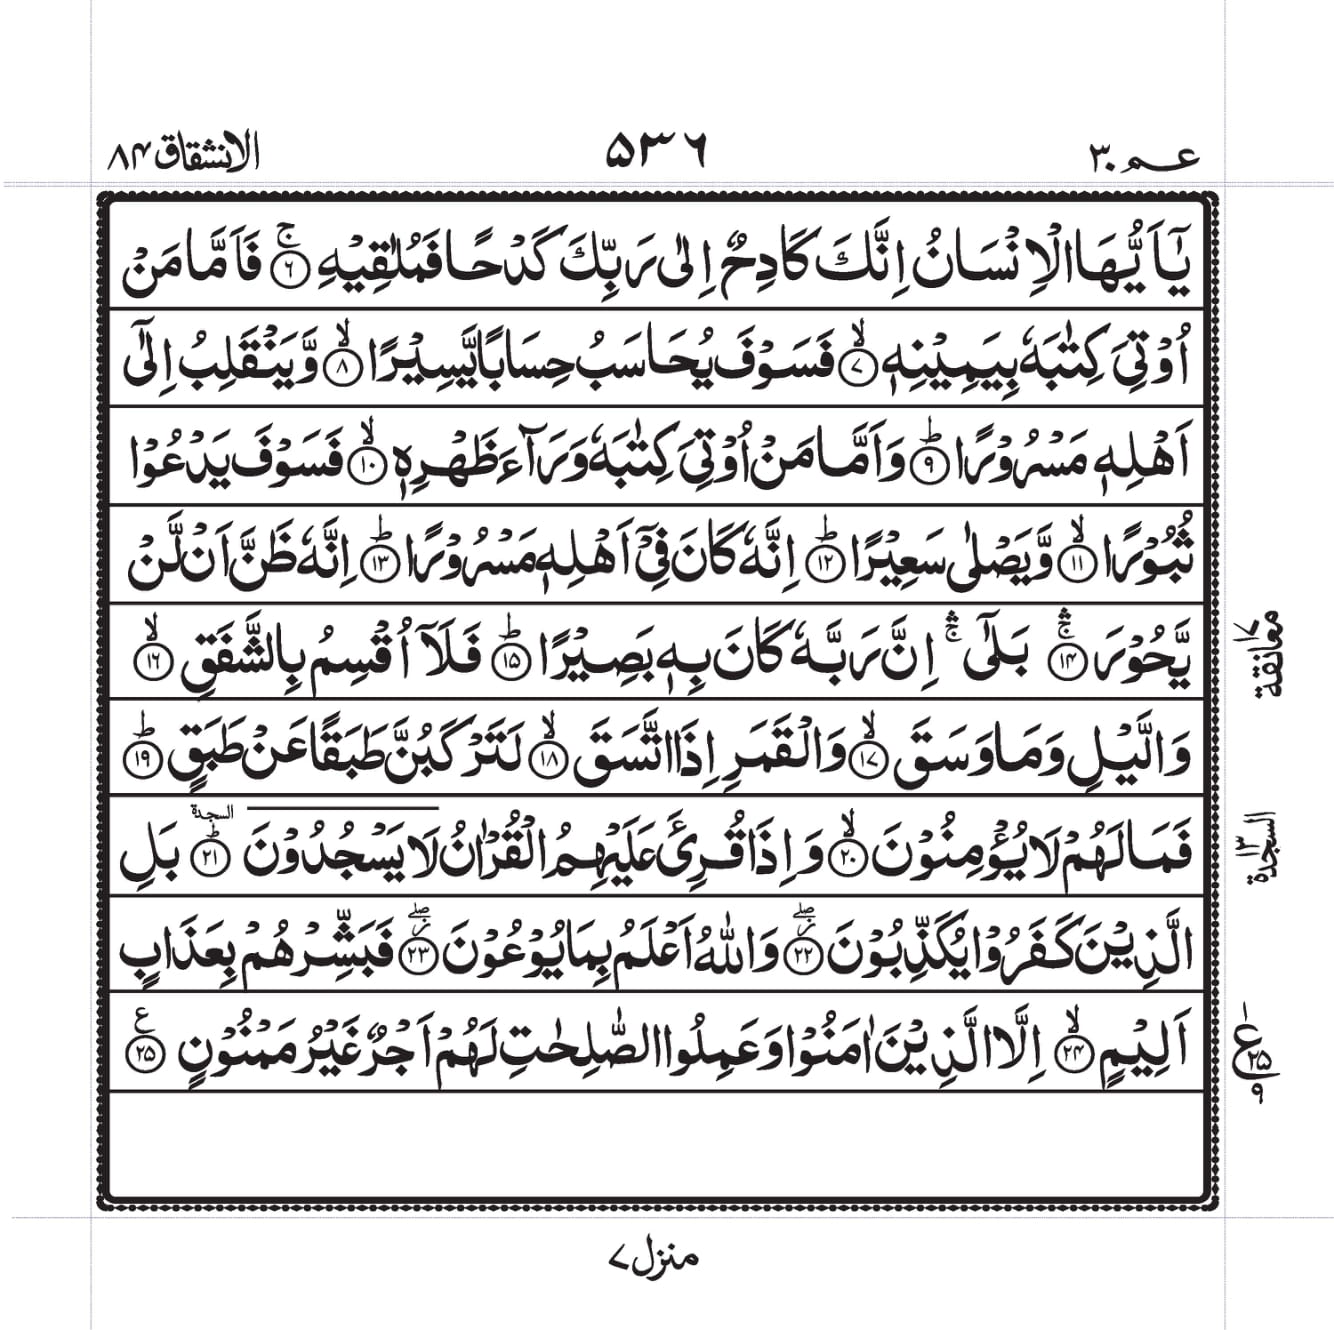 عـم ۳۰
۵۳۶
الانشقاق ۸۴
يٰٓاَيُّهَا الْاِنْسَانُ اِنَّكَ كَادِحٌ اِلٰى رَبِّكَ كَدْحًا فَمُلٰقِيْهِ ۚ‏﴿۶﴾ فَاَمَّا مَنْ
اُوْتِيَ كِتٰبَهٗ بِيَمِيْنِهٖ ۙ‏﴿۷﴾ فَسَوْفَ يُحَاسَبُ حِسَابًا يَّسِيْرًا ۙ‏﴿۸﴾ وَّيَنْقَلِبُ اِلٰٓى
اَهْلِهٖ مَسْرُوْرًا ؕ‏﴿۹﴾ وَاَمَّا مَنْ اُوْتِيَ كِتٰبَهٗ وَرَآءَ ظَهْرِهٖ ۙ‏﴿۱۰﴾ فَسَوْفَ يَدْعُوْا
ثُبُوْرًا ۙ‏﴿۱۱﴾ وَّيَصْلٰى سَعِيْرًا ؕ‏﴿۱۲﴾ اِنَّهٗ كَانَ فِيْٓ اَهْلِهٖ مَسْرُوْرًا ؕ‏﴿۱۳﴾ اِنَّهٗ ظَنَّ اَنْ لَّنْ
يَّحُوْرَ ۛۚ‏﴿۱۴﴾ بَلٰٓى ۛۚ اِنَّ رَبَّهٗ كَانَ بِهٖ بَصِيْرًا ؕ‏﴿۱۵﴾ فَلَآ اُقْسِمُ بِالشَّفَقِ ۙ‏﴿۱۶﴾
معانقة ۱۷
وَالَّيْلِ وَمَا وَسَقَ ۙ‏﴿۱۷﴾ وَالْقَمَرِ اِذَا اتَّسَقَ ۙ‏﴿۱۸﴾ لَتَرْكَبُنَّ طَبَقًا عَنْ طَبَقٍ ؕ‏﴿۱۹﴾
فَمَا لَهُمْ لَا يُؤْمِنُوْنَ ۙ‏﴿۲۰﴾ وَاِذَا قُرِئَ عَلَيْهِمُ الْقُرْاٰنُ لَا يَسْجُدُوْنَ السجدة ؕ‏﴿۲۱﴾ بَلِ
السجدة ۱۳
الَّذِيْنَ كَفَرُوْا يُكَذِّبُوْنَ ۖز‏﴿۲۲﴾ وَاللّٰهُ اَعْلَمُ بِمَا يُوْعُوْنَ ۖز‏﴿۲۳﴾ فَبَشِّرْهُمْ بِعَذَابٍ
اَلِيْمٍ ۙ‏﴿۲۴﴾ اِلَّا الَّذِيْنَ اٰمَنُوْا وَعَمِلُوا الصّٰلِحٰتِ لَهُمْ اَجْرٌ غَيْرُ مَمْنُوْنٍ ع‏﴿۲۵﴾
۱ ع ۲۵ ۹
منزل ۷